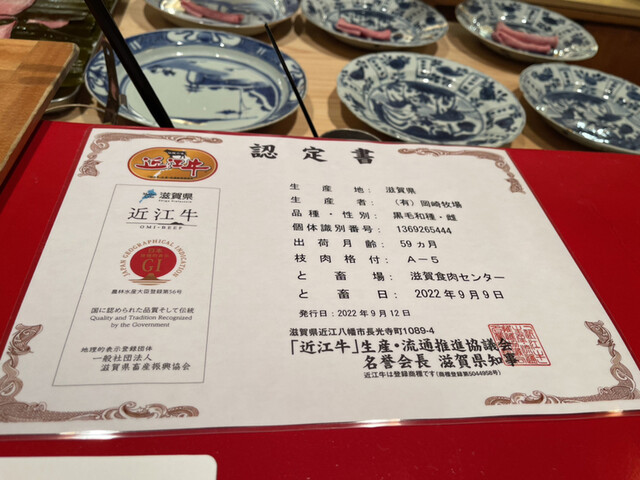 認定書
近江牛
滋賀県
Shiga Prefecture
近江牛
OMI-BEEF
JAPAN GEOGRAPHICAL INDICATION
GI
農林水産大臣登録第56号
国に認められた品質そして伝統
Quality and Tradition Recognized
by the Government
地理的表示登録団体
一般社団法人
滋賀県畜産振興協会
生産地: 滋賀県
生産者: (有)岡崎牧場
品種・性別: 黒毛和種・雌
個体識別番号: 1369265444
出荷月齢: 59ヵ月
枝肉格付: A－5
と畜場: 滋賀食肉センター
と畜日: 2022年9月9日
発行日:2022年9月12日
滋賀県近江八幡市長光寺町1089-4
「近江牛」生産・流通推進協議会
名誉会長 滋賀県知事
近江牛は登録商標です(商標登録第5044958号)